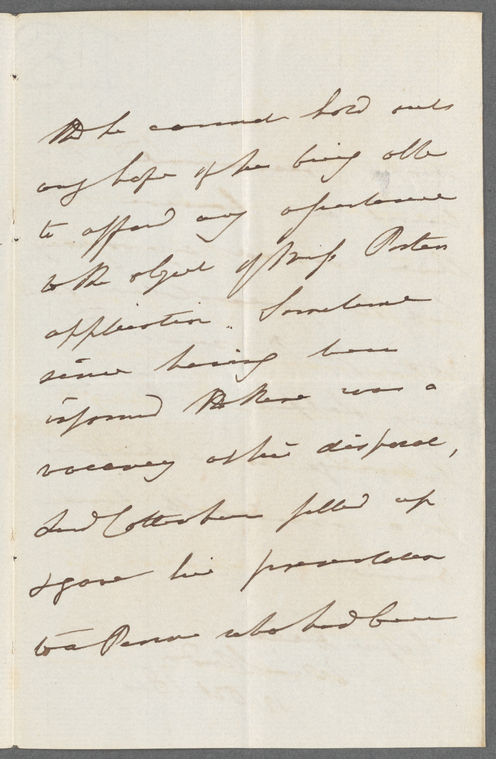 that he cannot hold out
any hope of his being able
to afford any assistance
to the object of Miss Porters
application. Sometime
since having been
informed that there was a
vacancy at his disposal,
Lord Cottenham filled up
& gave his presentation
to a Person who had been